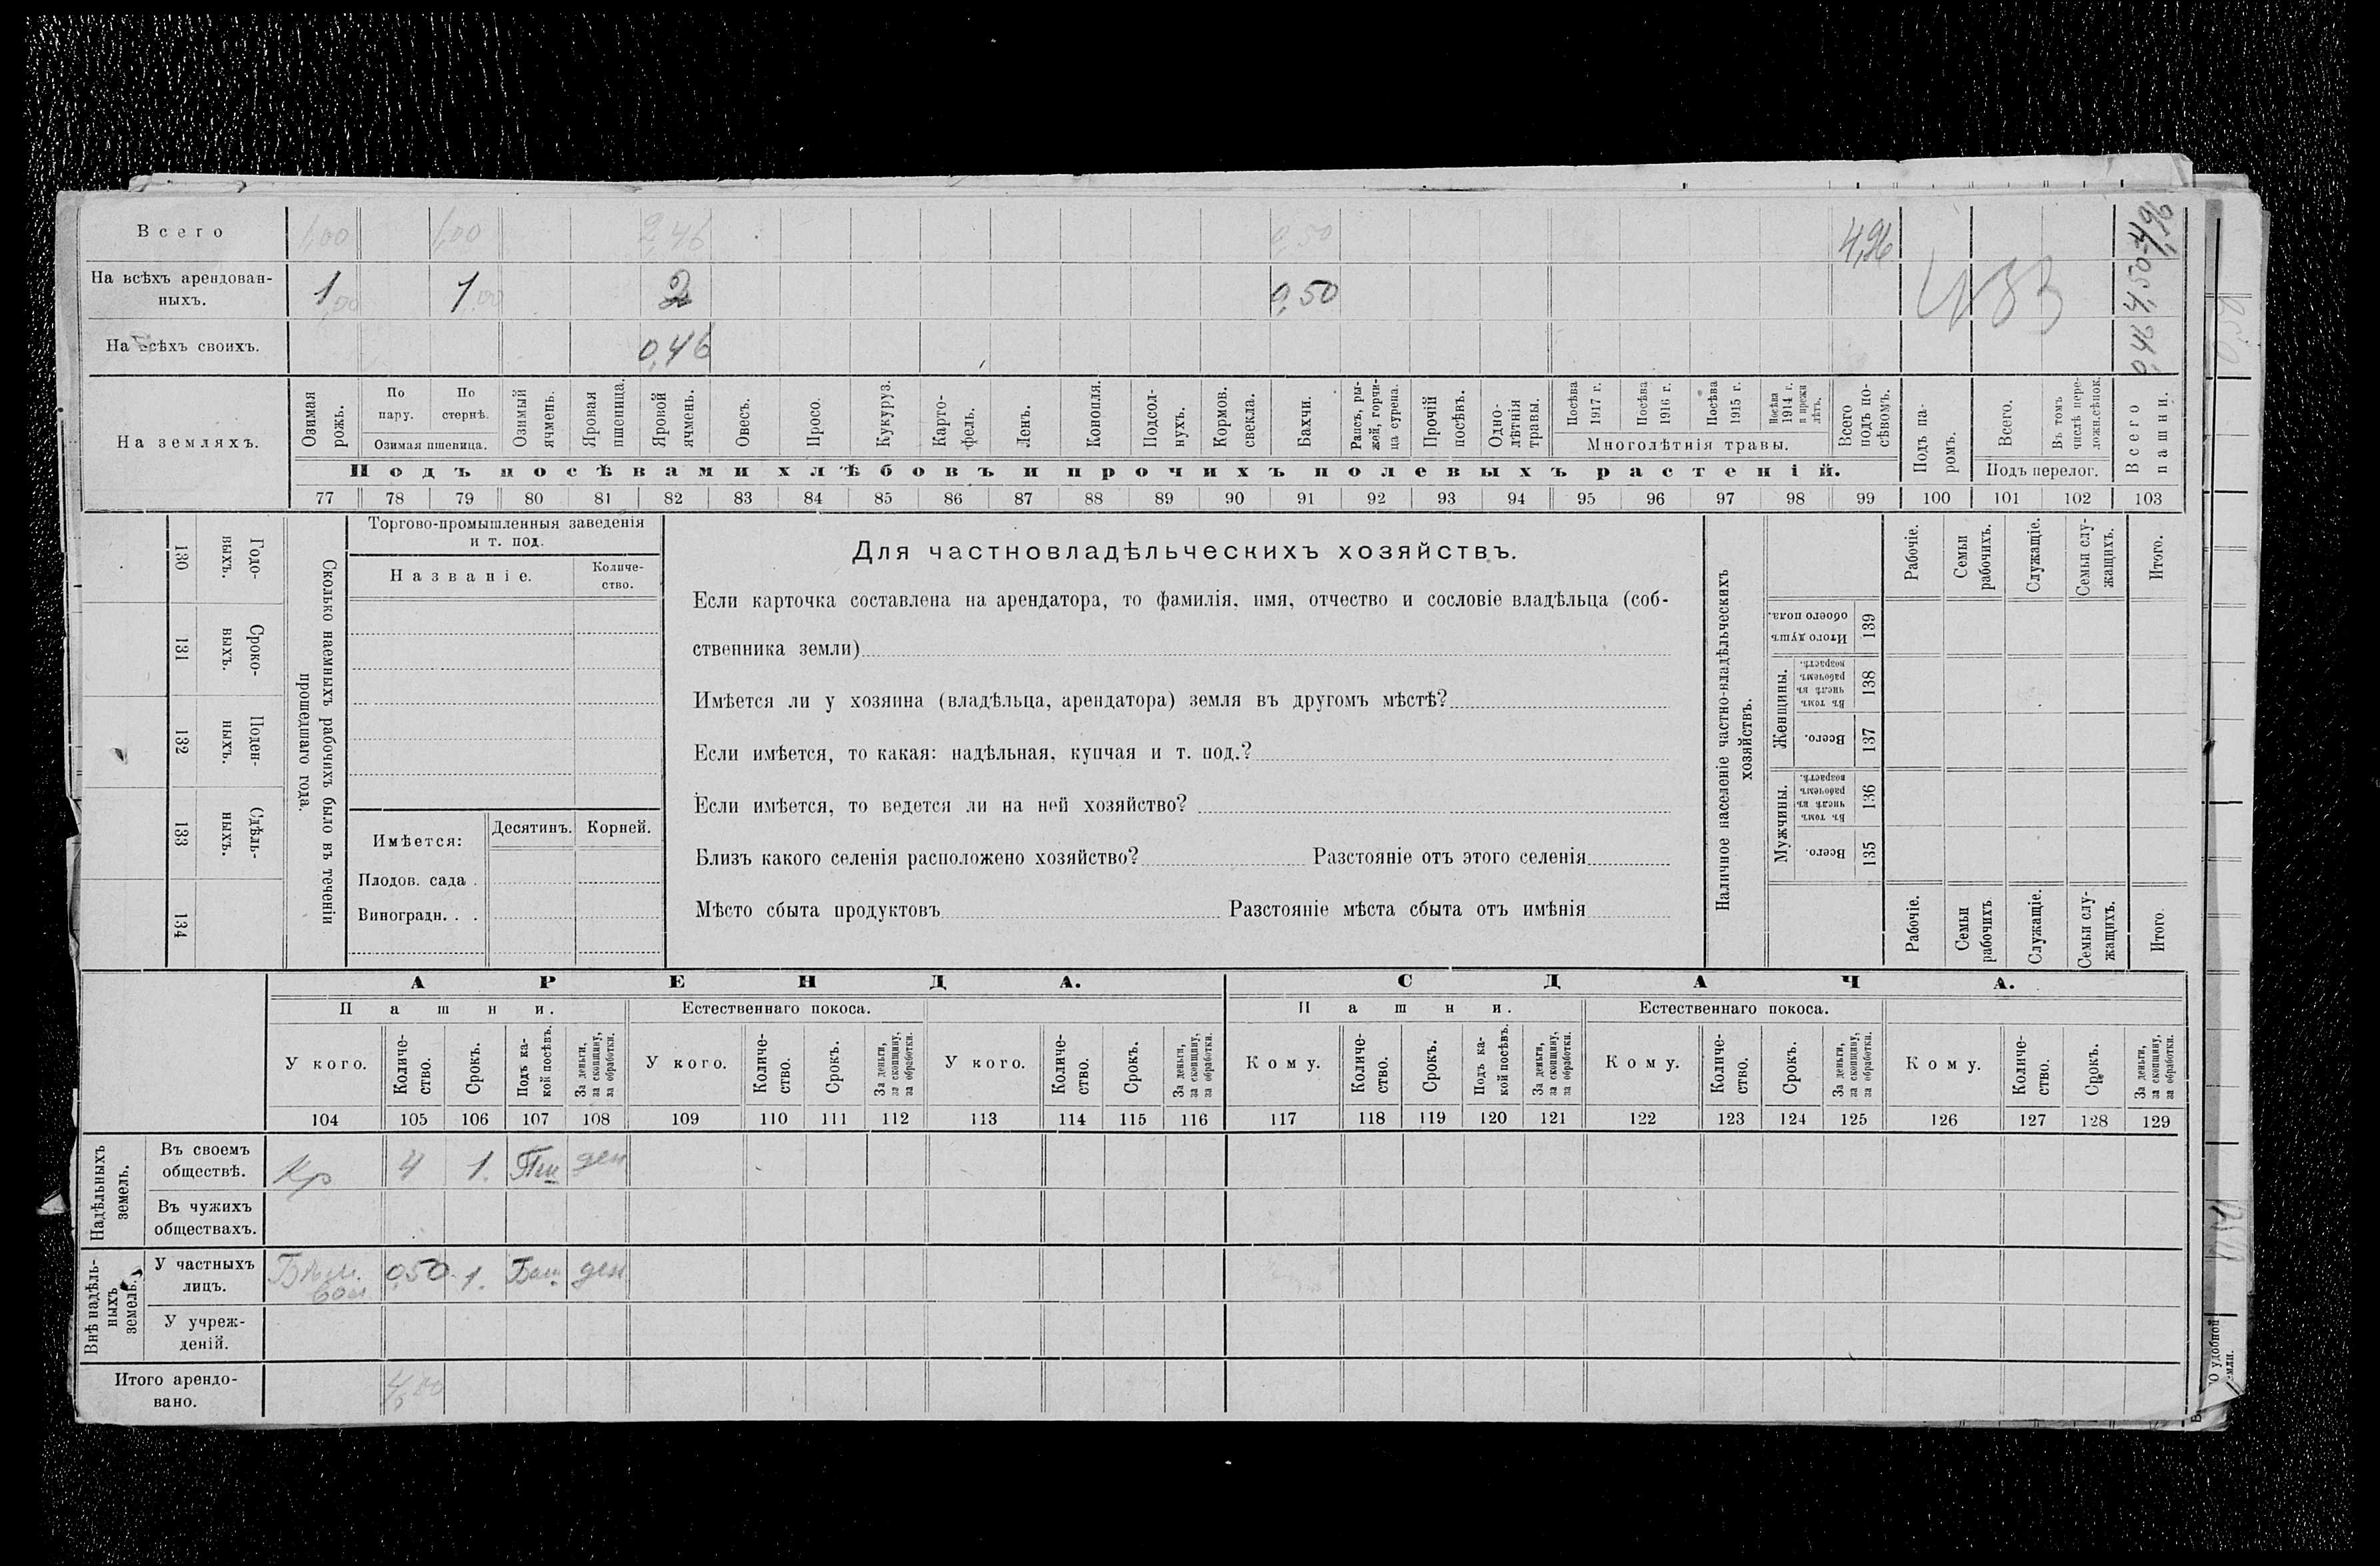 Всего 1,00 1,00 2,46 0,50 4,96 4,96
На всѣхъ арендован-
ныхъ. 1,00 1,00 2 0,50 4,50
На всѣхъ своихъ. 0,46 0,46
На земляхъ.
Озимая рожь.
По пару.
По стернѣ.
Озимая пшеница.
Озимый ячмень.
Яровая пшеница.
Яровой ячмень.
Овесъ.
Просо.
Кукуруз.
Карто-
фель.
Ленъ.
Конопля.
Подсол-
нухъ.
Кормов. свекла.
Бахчи.
Рапсъ, ры-
жей, горчи-
ца сурепа.
Прочій посѣвъ.
Одно-
лѣтнія травы.
Посѣва 1917 г.
Посѣва 1916 г.
Посѣва 1915 г.
Посѣва 1914 г. и прежн лѣтъ.
Многолѣтнія травы.
Всего подъ по-
сѣвомъ.
Подъ па-
ромъ.
Всего.
Въ томъ числѣ пере-
ложн.сѣнок.
Подъ перелог.
Всего пашни.
Подъ посѣвами хлѣбовъ и прочихъ полевыхъ растеній.
77 78 79 80 81 82 83 84 85 86 87 88 89 90 91 92 93 94 95 96 97 98 99 100 101 102 103
130 Годо-
выхъ.
131 Сроко-
выхъ.
132 Поден-
ныхъ.
133 Сдѣль-
ныхъ.
134
Сколько наемныхъ рабочихъ было въ теченіи
прошедшаго года.
Торгово-промышленныя заведенія
и т. под.
Названіе.
Количе-
ство.
Имѣется: Десятинъ. Корней.
Плодов. сада .
Виноградн. . .
Для частновладѣльческихъ хозяйствъ.
Если карточка составлена на арендатора, то фамилія, имя, отчество и сословіе владѣльца (соб-
ственника земли)
Имѣется ли у хозяина (владѣльца, арендатора) земля въ другомъ мѣстѣ?
Если имѣется, то какая: надѣльная, купчая и т. под.?
Если имѣется, то ведется ли на ней хозяйство?
Близъ какого селенія расположено хозяйство? Разстояніе отъ этого селенія
Мѣсто сбыта продуктовъ Разстояніе мѣста сбыта отъ имѣнія
Наличное населеніе частно-владѣльческихъ
хозяйствъ.
Рабочіе.
Семьи рабочихъ.
Служащіе.
Семьи слу-
жащихъ.
Итого.
Итого душъ обоего пола. 139
Женщины.
Въ томъ числѣ въ рабочемъ возрастѣ. 138
Всего. 137
Мужчины.
Въ томъ числѣ въ рабочемъ возрастѣ. 136
Всего. 135
Рабочіе.
Семьи рабочихъ
Служащіе.
Семьи слу-
жащихъ.
Итого.
АРЕНДА. СДАЧА.
Пашни. Естественнаго покоса. Пашни. Естественнаго покоса.
У кого.
Количе-
ство.
Срокъ.
Подъ ка-
кой посѣвъ.
За деньги,
за скопщину,
за обработки.
У кого.
Количе-
ство.
Срокъ.
За деньги,
за скопщину,
за обработки.
У кого.
Количе-
ство.
Срокъ.
За деньги,
за скопщину,
за обработки.
Кому.
Количе-
ство.
Срокъ.
Подъ ка-
кой посѣвъ.
За деньги,
за скопщину,
за обработки.
Кому.
Количе-
ство.
Срокъ.
За деньги,
за скопщину,
за обработки.
Кому.
Количе-
ство.
Срокъ.
За деньги,
за скопщину,
за обработки.
104 105 106 107 108 109 110 111 112 113 114 115 116 117 118 119 120 121 122 123 124 125 126 127 128 129
Надѣльныхъ
земель.
Въ своемъ
обществѣ. Кр 4 1. ден
Въ чужихъ
обществахъ.
Внѣ надѣль-
ныхъ
земель.
У частныхъ
лицъ. 0,50 1. ден
У учреж-
деній.
Итого арендо-
вано.
О удобной